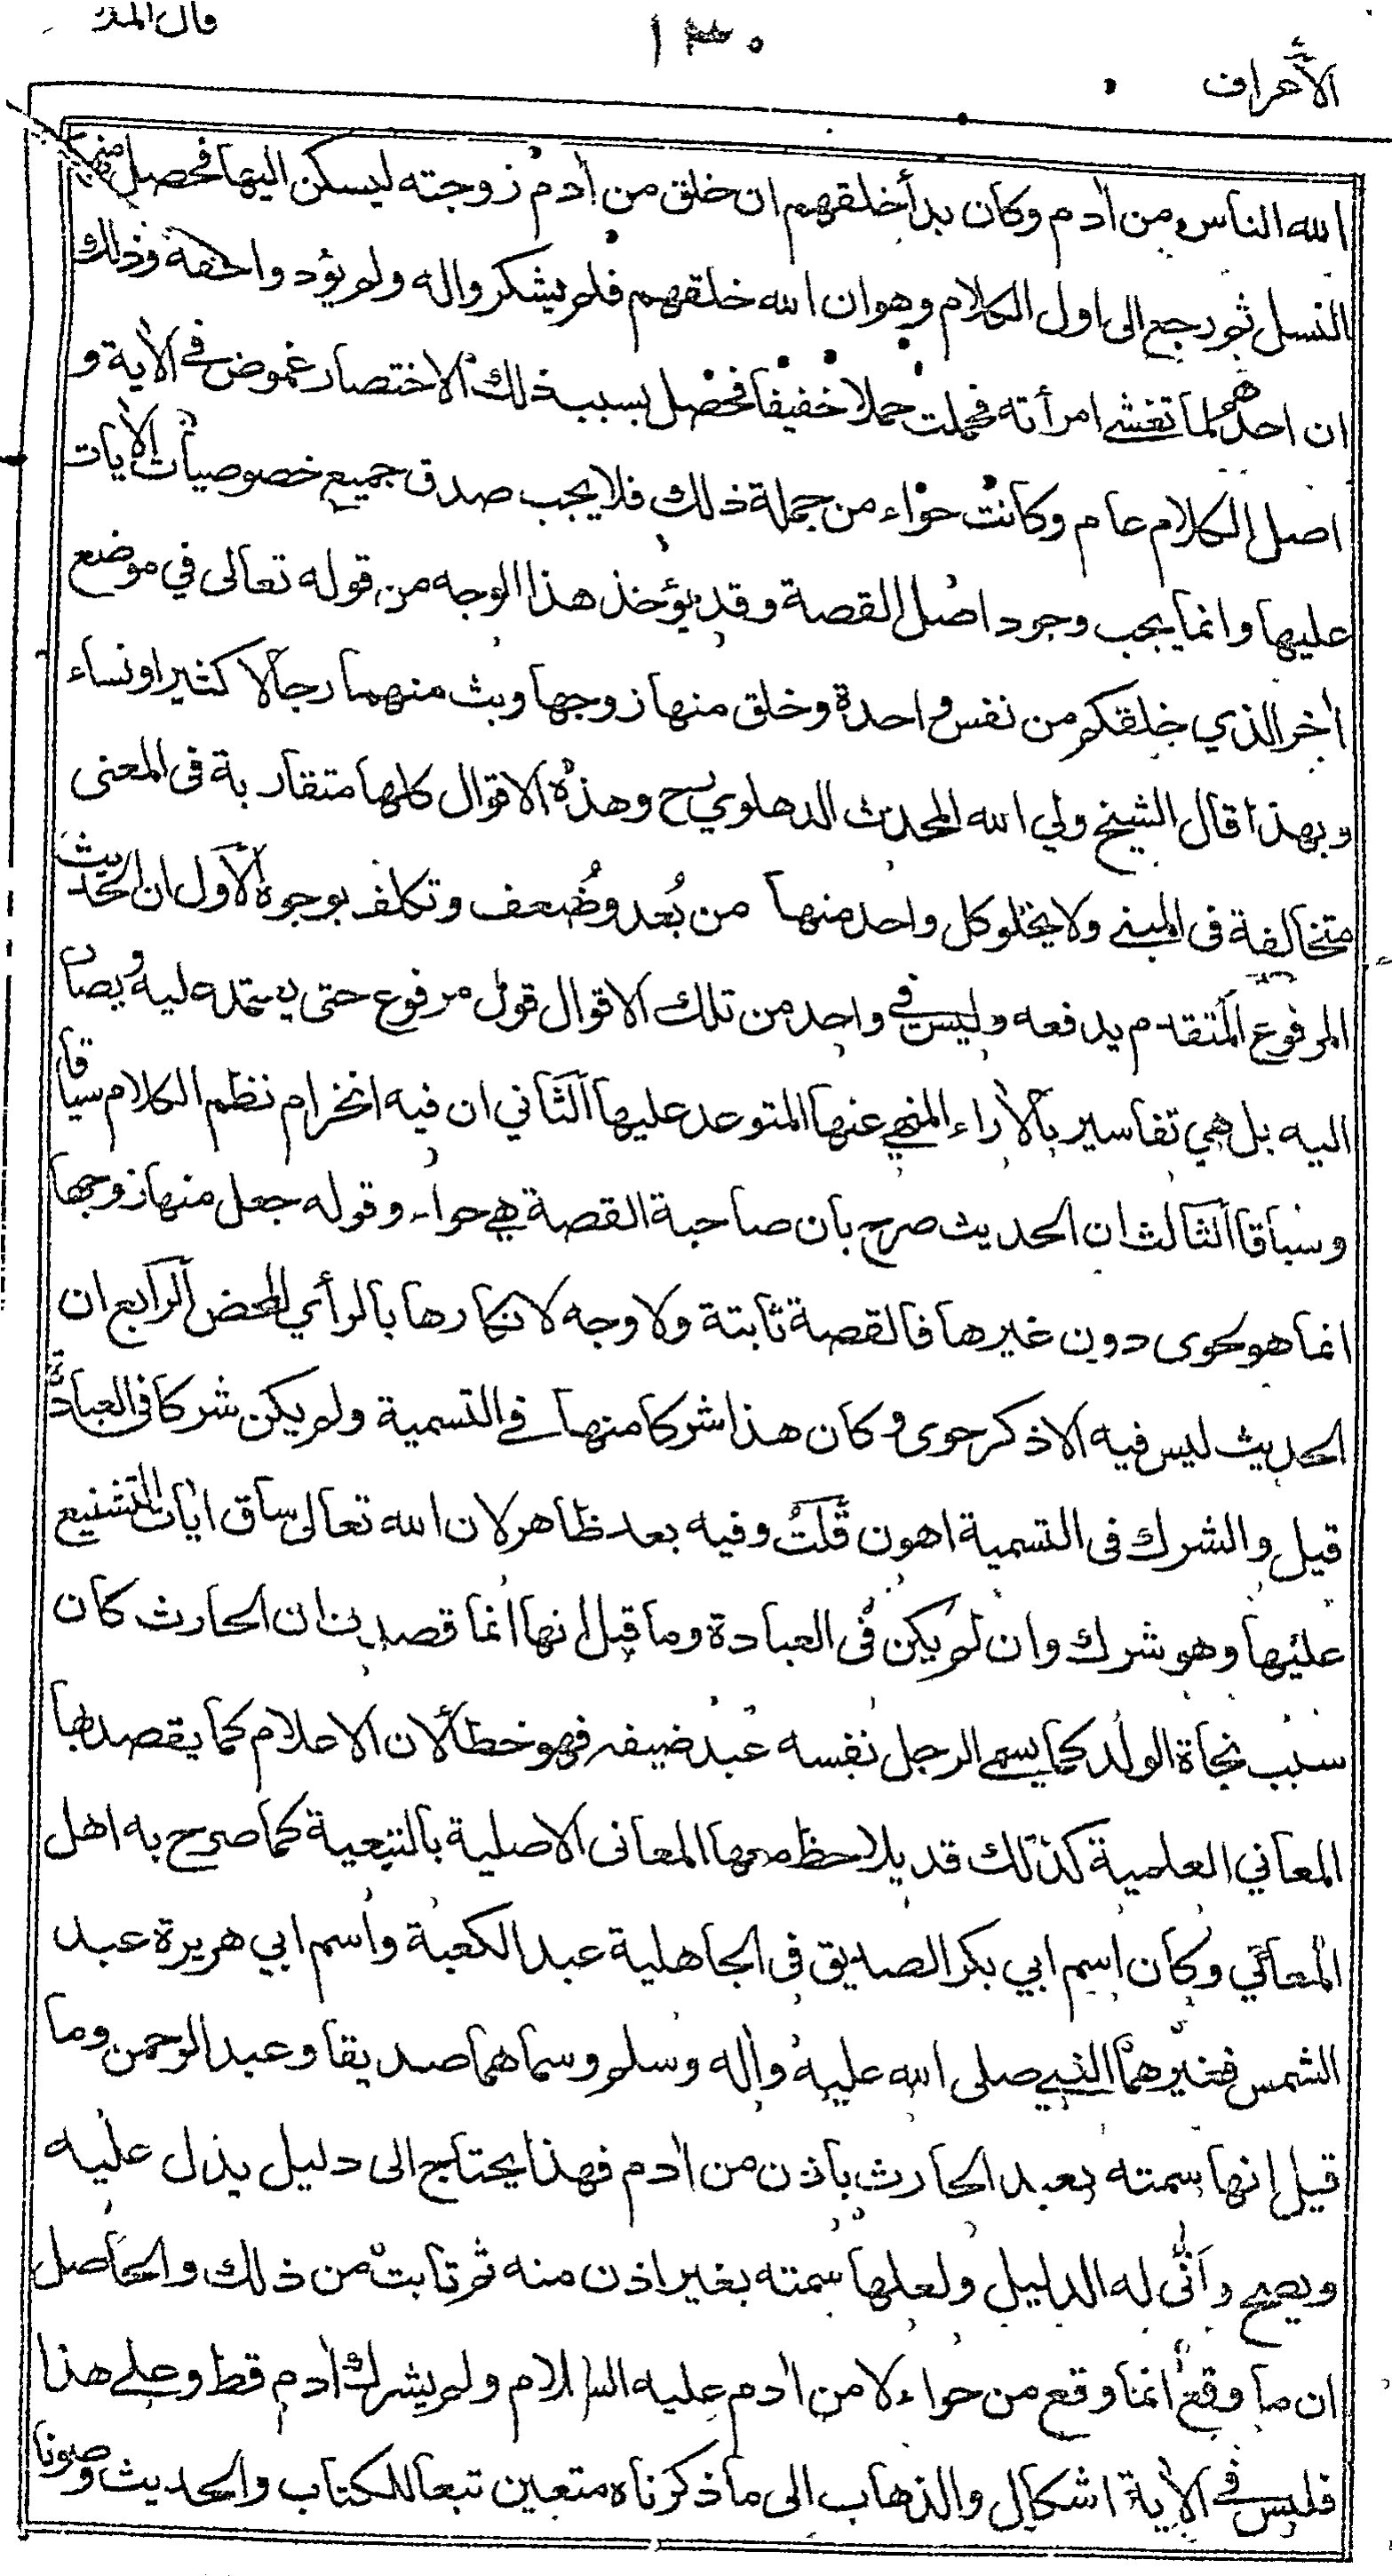 قال الملأ
١٣٠
الأعراف
الله الناس من اٰدم وكان بدأ خلقهم ان خلق من اٰدم زوجته ليسكن اليها فحصل منهما
النسل ثم رجع الى اول الكلام وهو ان الله خلقهم فلم يشكروا له ولم يؤدوا حقه وذلك
ان احدهم لما تغشى امرأته فحملت حملا خفيفا فحصل بسبب ذلك الاختصار غموض في الاٰية و
اصل الكلام عام وكانت حواء من جملة ذلك فلا يجب صدق جميع خصوصيات الاٰيات
عليها وانما يجب وجود اصل القصة وقد يؤخذ هذا الوجه من قوله تعالى في موضع
اٰخر الذي خلقكم من نفس واحدة وخلق منها زوجها وبث منهما رجالا كثيرا ونساء
وبهذا قال الشيخ ولي الله المحدث الدهلوي رح وهذه الاقوال كلها متقاربة فى المعنى
متخالفة فى المبنى ولا يخلو كل واحد منها من بُعد وضُعف وتكلف بوجوه الاول ان الحديث
المرفوع المتقدم يدفعه وليس في واحد من تلك الاقوال قول مرفوع حتى يعتمد عليه ويصار
اليه بل هي تفاسير بالاٰراء المنهي عنها المتوعد عليها الثاني ان فيه انخرام نظم الكلام سياقا
وسباقا الثالث ان الحديث صرح بان صاحبة القصة هي حواء وقوله جعل منها زوجها
انما هو لحوى دون غيرها فالقصة ثابتة ولا وجه لانكارها بالرأي المحض الرابع ان
الحديث ليس فيه الا ذكر حوى وكان هذا شركا منها في التسمية ولم يكن شركا فى العبادة
قيل والشرك فى التسمية اهون قلت وفيه بعد ظاهر لان الله تعالى ساق اٰيات التشنيع
عليها وهو شرك وان لم يكن فى العبادة وما قيل انها انما قصدت ان الحارث كان
سبب نجاة الولد كما يسمى الرجل نفسه عبد ضيفه فهو خطأ لان الاعلام كما يقصد بها
المعاني العلمية كذلك قد يلاحظ معها المعانى الاصلية بالتبعية كما صرح به اهل
المعاني وكان اسم ابي بكر الصديق فى الجاهلية عبد الكعبة واسم ابي هريرة عبد
الشمس فغيرهما النبي صلى الله عليه واٰله وسلم وسماهما صديقا وعبد الرحمن وما
قيل انها سمته بعبد الحارث باذن من اٰدم فهذا يحتاج الى دليل يدل عليه
ويصح وانّى له الدليل ولعلها سمته بغير اذن منه ثم تابت من ذلك والحاصل
ان ما وقع انما وقع من حواء لا من اٰدم عليه السلام ولم يشرك اٰدم قط وعلى هذا
فليس في الاٰية اشكال والذهاب الى ما ذكرناه متعين تبعا للكتاب والحديث وصونا